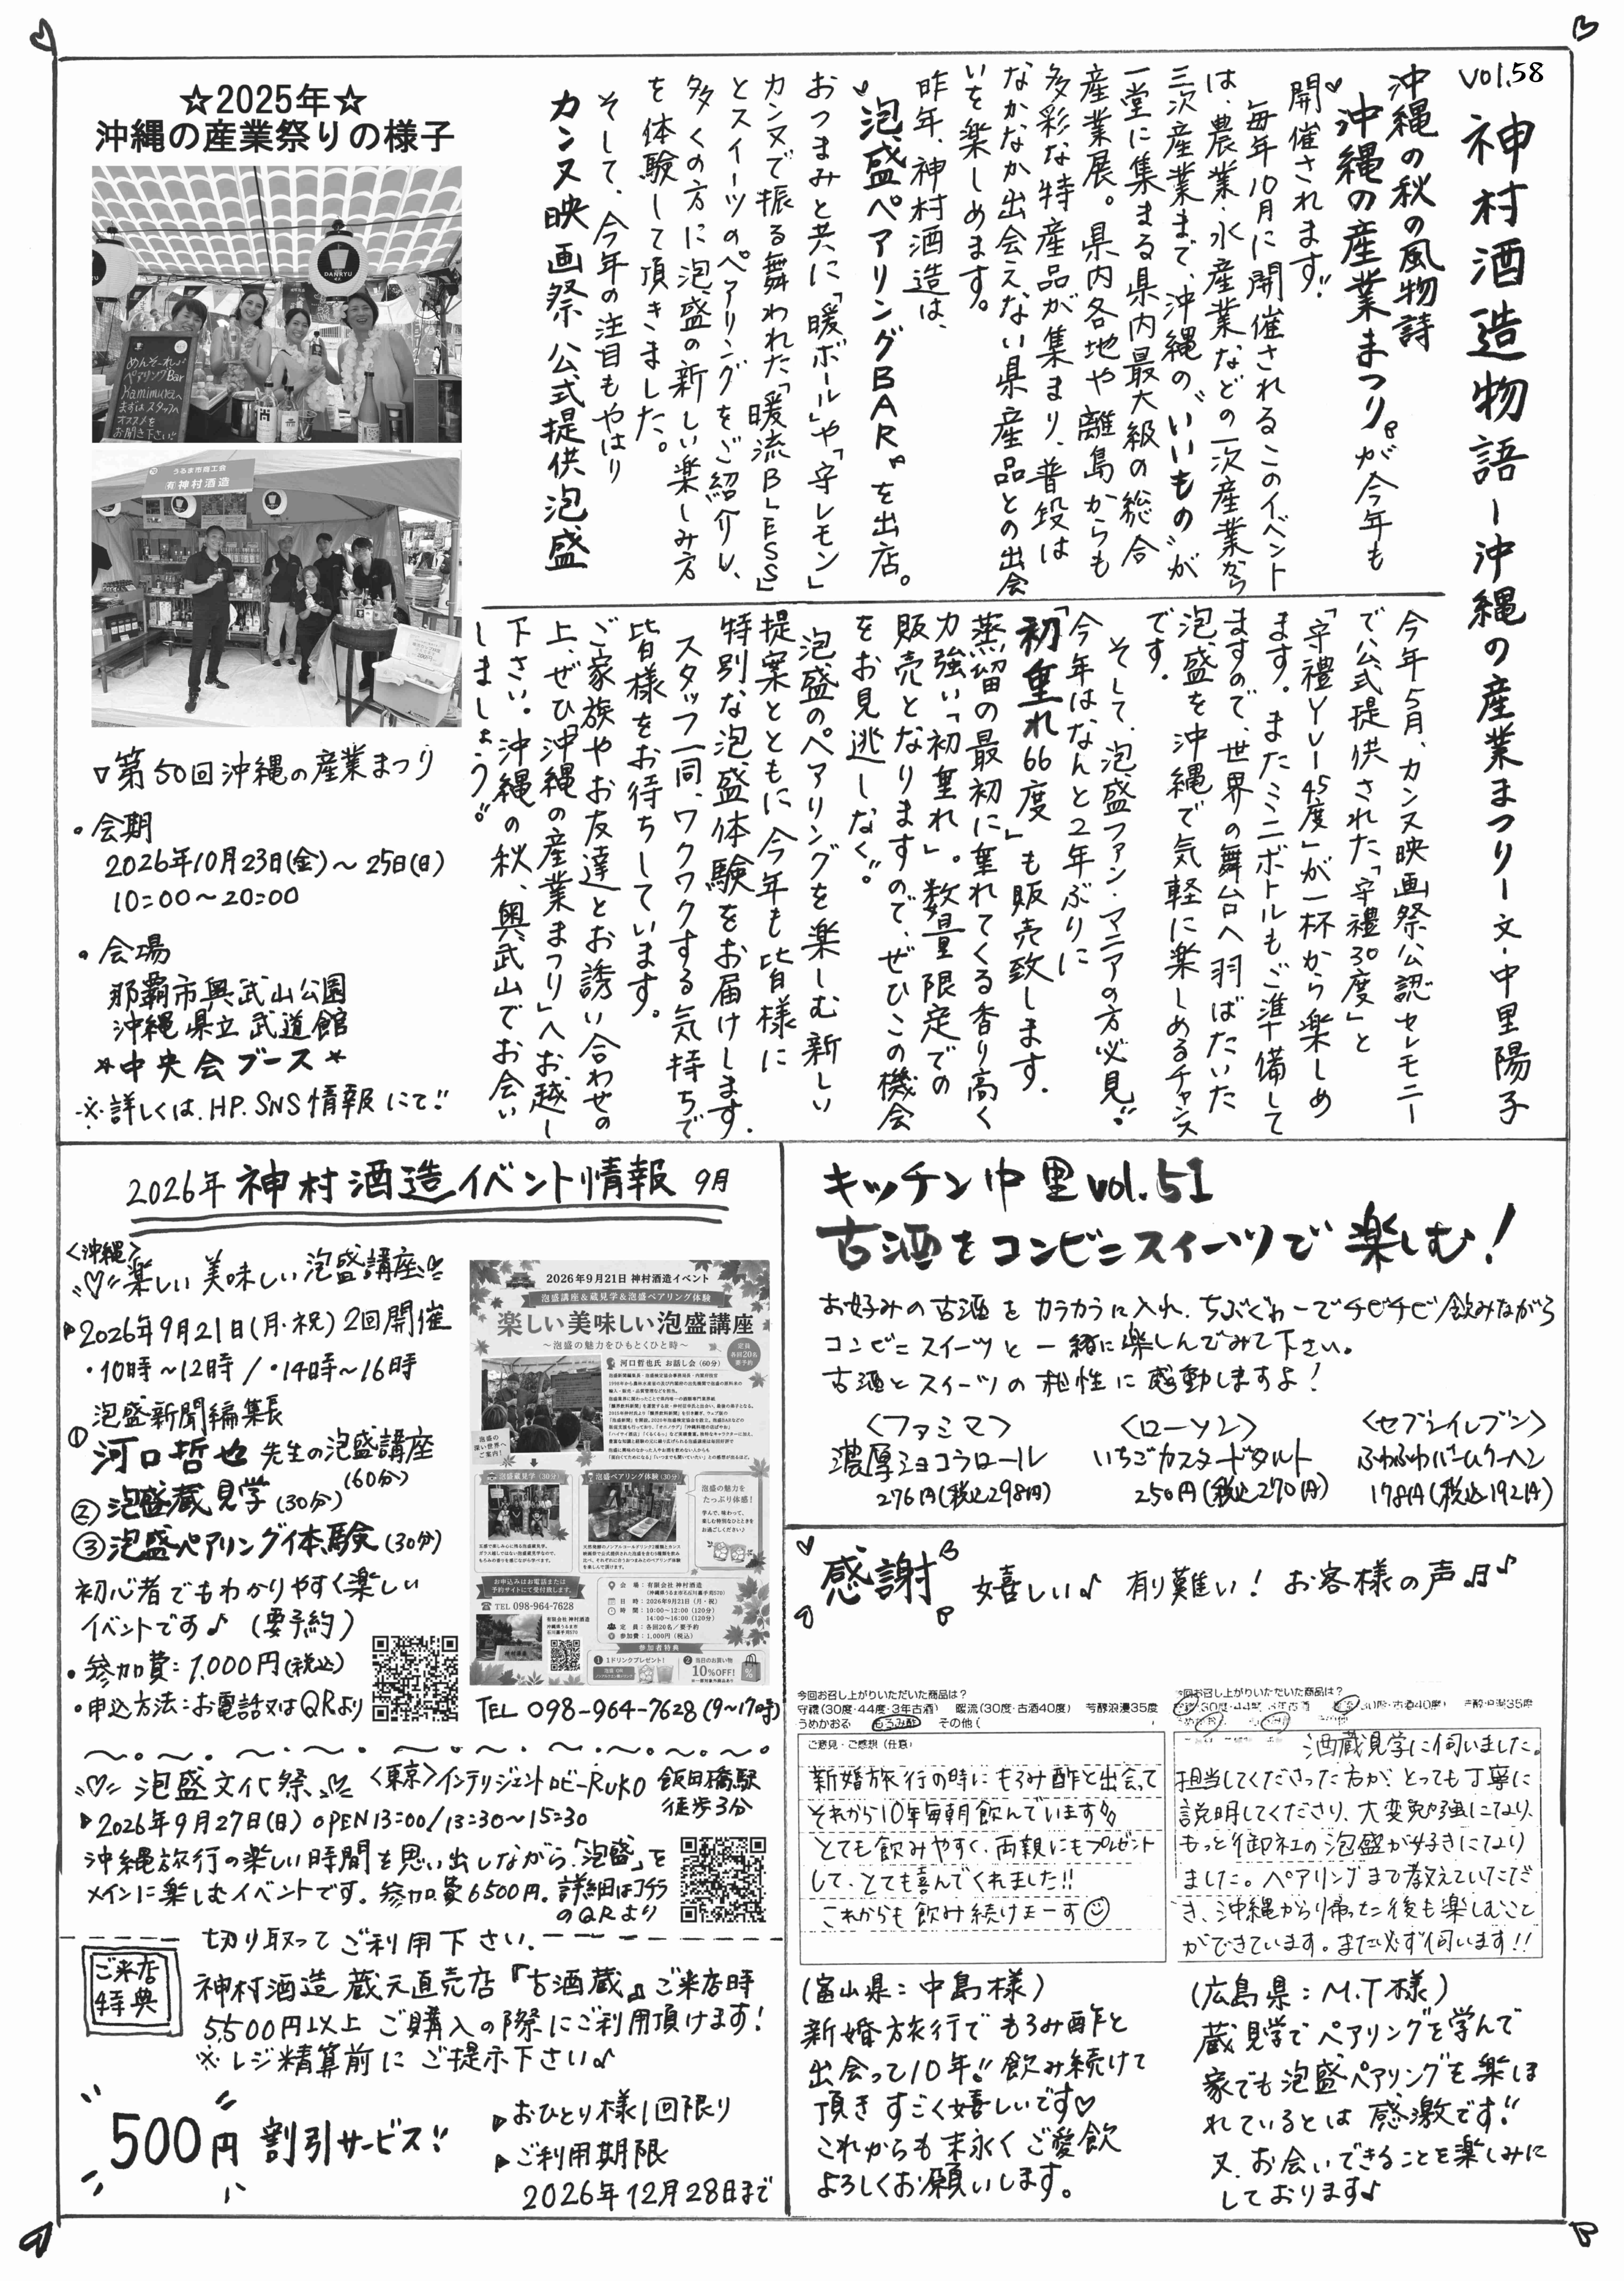 vol.58 神村酒造物語ー沖縄の産業まつりー文・中里陽子
沖縄の秋の風物詩
沖縄の産業まつりが今年も
開催されます!!
毎年10月に開催されるこのイベント
は、農業・水産業などの一次産業から
三次産業まで、沖縄の〝いいもの〟が
一堂に集まる県内最大級の総合
産業展。県内各地や離島からも
多彩な特産品が集まり、普段は
なかなか出会えない県産品との出会
いを楽しめます。
昨年、神村酒造は、
泡盛ペアリングBARを出店。
おつまみと共に「暖ボール」や「守レモン」
カンヌで振る舞われた「暖流BLESS」
とスイーツのペアリングをご紹介し、
多くの方に泡盛の新しい楽しみ方
を体験して頂きました。
そして、今年の注目もやはり
カンヌ映画祭公式提供泡盛
今年5月、カンヌ映画祭公認セレモニー
で公式提供された「守禮30度」と
「守禮YU-45度」が一杯から楽しめ
ます。またミニボトルもご準備して
ますので、世界の舞台へ羽ばたいた
泡盛を沖縄で気軽に楽しめるチャンス
です。
そして、泡盛ファン・マニアの方必見!!
今年はなんと2年ぶりに
「初垂れ66度」も販売致します。
蒸留の最初に垂れてくる香り高く
力強い「初垂れ」。数量限定での
販売となりますので、ぜひこの機会
をお見逃しなく!!
泡盛のペアリングを楽しむ新しい
提案とともに今年も皆様に
特別な泡盛体験をお届けします。
スタッフ一同、ワクワクする気持ちで
皆様をお待ちしています。
ご家族やお友達とお誘い合わせの
上、ぜひ「沖縄の産業まつり」へお越し
下さい。沖縄の秋、奥武山でお会い
しましょう!!
☆2025年☆
沖縄の産業祭りの様子
DANRYU
めんそーれ♪
ペアリングBar
Kamimuraへ
まずはスタッフへ
オススメを
お聞き下さい!!
うるま市商工会
(有)神村酒造
▽第50回沖縄の産業まつり
・会期
2026年10月23日(金)~25日(日)
10:00~20:00
・会場
那覇市奥武山公園
沖縄県立武道館
*中央会ブース*
※詳しくは、HP.SNS情報にて!!
2026年神村酒造イベント情報 9月
<沖縄>
楽しい美味しい泡盛講座
▶2026年9月21日(月・祝)2回開催
・10時~12時/・14時~16時
泡盛新聞編集長
①河口哲也先生の泡盛講座
(60分)
②泡盛蔵見学(30分)
③泡盛ペアリング体験(30分)
初心者でもわかりやすく楽しい
イベントです♪(要予約)
・参加費:1,000円(税込)
・申込方法:お電話又はQRより
2026年9月21日 神村酒造イベント
泡盛講座&蔵見学&泡盛ペアリング体験
楽しい美味しい泡盛講座
~泡盛の魅力をひもとくひと時~
定員
各回20名
要予約
河口哲也氏 お話し会(60分)
泡盛の
深い世界へ
ご案内!
泡盛蔵見学(30分)
泡盛ペアリング体験(30分)
泡盛の魅力を
たっぷり体感!
お申込みはお電話または
予約サイトにて受付致します。
TEL 098-964-7628
有限会社 神村酒造
沖縄県うるま市
石川嘉手苅570
会 場:有限会社 神村酒造
(沖縄県うるま市石川嘉手苅570)
日 時:2026年9月21日(月・祝)
時 間:10:00~12:00(120分)
14:00~16:00(120分)
定 員:各回20名/要予約
参加費:1,000円(税込)
参加者特典
1 1ドリンクプレゼント!
2 当日のお買い物
10%OFF!
TEL 098-964-7628(9~17時)
泡盛文化祭 <東京>インテリジェントロビーRuKo 飯田橋駅
徒歩3分
▶2026年9月27日(日) OPEN13:00/13:30~15:30
沖縄旅行の楽しい時間を思い出しながら、「泡盛」を
メインに楽しむイベントです。参加費6500円。詳細はコチラ
のQRより
切り取ってご利用下さい。
ご来店
特典
神村酒造蔵元直売店『古酒蔵』ご来店時
5,500円以上ご購入の際にご利用頂けます!
※レジ精算前にご提示下さい♪
500円割引サービス!!
▶おひとり様1回限り
▶ご利用期限
2026年12月28日まで
キッチン中里vol.51
古酒をコンビニスイーツで楽しむ!
お好みの古酒をカラカラに入れ、ちぶぐゎーでチビチビ飲みながら
コンビニスイーツと一緒に楽しんでみて下さい。
古酒とスイーツの相性に感動しますよ!
<ファミマ>
濃厚ショコラロール
276円(税込298円)
<ローソン>
いちごカスタードタルト
250円(税込270円)
<セブンイレブン>
ふわふわバームクーヘン
178円(税込192円)
感謝 嬉しい♪ 有り難い! お客様の声♪
今回お召し上がりいただいた商品は?
守禮(30度・44度・3年古酒) 暖流(30度・古酒40度) 芳醇浪漫35度
うめかおる もろみ酢 その他(
ご意見・ご感想(任意)
新婚旅行の時にもろみ酢と出会って
それから10年毎朝飲んでいます
とても飲みやすく、両親にもプレゼント
して、とても喜んでくれました!!
これからも飲み続けまーす
今回お召し上がりいただいた商品は?
守禮(30度・44度・3年古酒) 暖流(30度・古酒40度) 芳醇浪漫35度
酒蔵見学に伺いました。
担当してくださった方が、とっても丁寧に
説明してくださり、大変勉強になり、
もっと御社の泡盛が好きになり
ました。ペアリングまで教えていただ
き、沖縄から帰った後も楽しむこと
ができています。また必ず伺います!!
(富山県:中島様)
新婚旅行でもろみ酢と
出会って10年!!飲み続けて
頂きすごく嬉しいです♡
これからも末永くご愛飲
よろしくお願いします。
(広島県:M.T様)
蔵見学でペアリングを学んで
家でも泡盛ペアリングを楽しま
れているとは感激です!!
又、お会いできることを楽しみに
しております♪